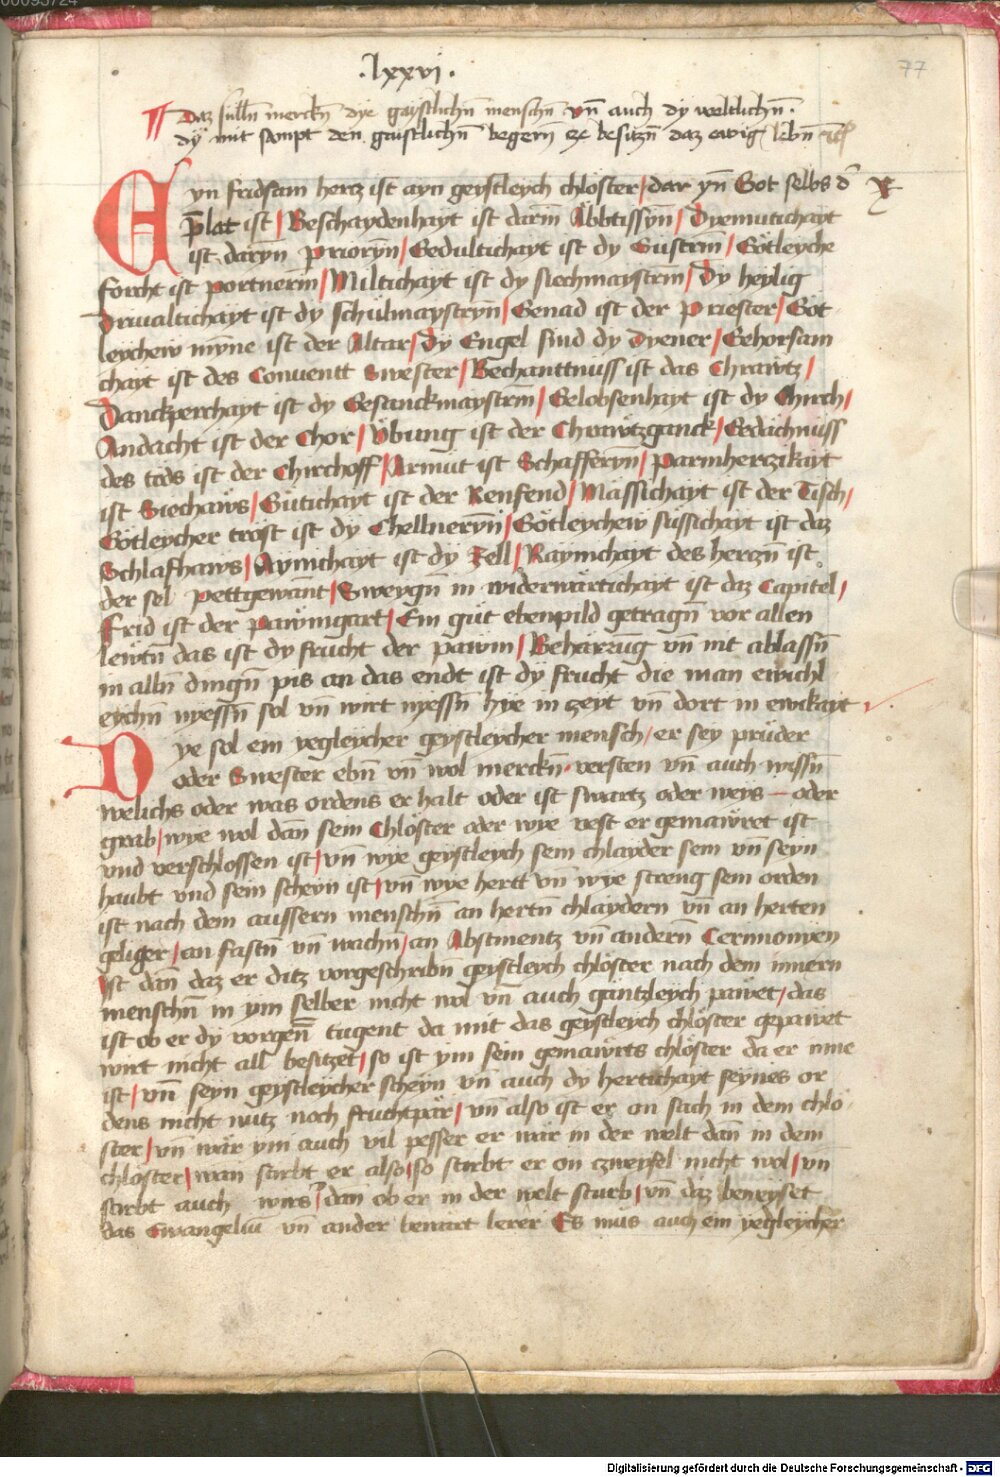 00093724
.lxxvi.
77
Daz sulln̄ merckn̄ dye gaystlichn̄ menschn̄ vn̄ auch dy weltlichn̄.
dÿ mit sampt den gaistlichn̄ begern̄ ze besitzn̄ daz ewig lebn̄
Eyn fridsam hercz ist ayn geystleych chloster / dar yn̄ Got selbs d'
p̄lat ist / Beschaydenhayt ist darin̄ Äbbtissyn̄ / Dyemutichayt
ist daryn̄ Prioryn̄ / Gedultichayt ist dy Gustrin̄ / Götleyche
forcht ist portnerin̄ / Miltichayt ist dy siechmaystrin̄ / Dy heylig
Driualtichayt ist dy schülmaystryn̄ / Genad ist der Priester / Got
leychew mÿne ist der Altar / Dy Engel sind dy Dyener / Gehorsam
chayt ist des Conuentt Swester / Bechanttnuss ist das Chrawtz /
Danckperchayt ist dy Gesanckmaystrin̄ / Gelobsenhayt ist dy Chirch /
Andacht ist der Chor / Vbung ist der Chrawtzganck / Gedächnuss
des tods ist der Chirchoff / Armüt ist Schafferyn / Parmherczikayt
ist Siechaws / Gütichayt ist der Renfend / Mässichayt ist der Tisch /
Götleycher trost ist dy Chellneryn̄ / Götleychew süssichayt ist daz
Schlafhaws / Aynichayt ist dy Zell / Raynichayt des herczn̄ ist
der sel pettgewant / Sweygn̄ in widerwärtichayt ist daz Capitel /
Frid ist der pawmgart / Ein güt ebenpild getragn̄ vor allen
lewtn̄ das ist dy frucht der pawm / Beharrūg vn̄ nit ablassn̄
in alln̄ dingn̄ pis an das endt ist dÿ frucht die man ewichl
eychn̄ nyessn̄ sol vn̄ wirt nyessn̄ hye in zeyt vn̄ dort in ewikayt
Dye sol ein yegleycher geystleycher mensch / er sey prüder
oder Swester ebn̄ vn̄ wol merckn̄ versten vn̄ auch wissn̄
welichs oder was ordens er halt oder ist swartz oder weys oder
grab / wye wol dan̄ sein Chlöster oder wye vest er gemawret ist
vnd verschlossen ist / vn̄ wye geystleych sein chlayder sein vn̄ seyn
haubt vnd sein scheyn ist / vn̄ wye hertt vn̄ wye streng sein orden
ist nach dem aussern menschn̄ an hertn̄ chlaydern vn̄ an herten
geliger / an fastn̄ vn̄ wachn̄ / an Abstinentz vn̄ andern̄ Cerimonyen
Ist dan̄ daz er ditz vorgeschribn̄ geystleych chlöster nach dem innern
menschn̄ in ym selber nicht wol vn̄ auch gäntzleych pawet / das
ist ob er dy vorgen̄ tugent da mit das geystleych chlöster gepawet
wirt nicht all besitzet / so ist ym sein gemawrts chlöster da er inne
ist / vn̄ seyn geystleycher scheyn vn̄ auch dy hertichayt seynes or
dens nicht nutz noch fruchtpär / vn̄ also ist er on sach in dem chlö
ster / vn̄ wär ym auch vil pesser er wär in der welt dan̄ in dem
chlöster / wan stirbt er also / so stirbt er on czweyfel nicht wol / vn̄
stirbt auch wirs dan̄ ob er in der welt sturb / vn̄ daz beweyset
das Ewangeliū vn̄ ander bewärt lerer Es müs auch ein yegleycher
Digitalisierung gefördert durch die Deutsche Forschungsgemeinschaft - DFG